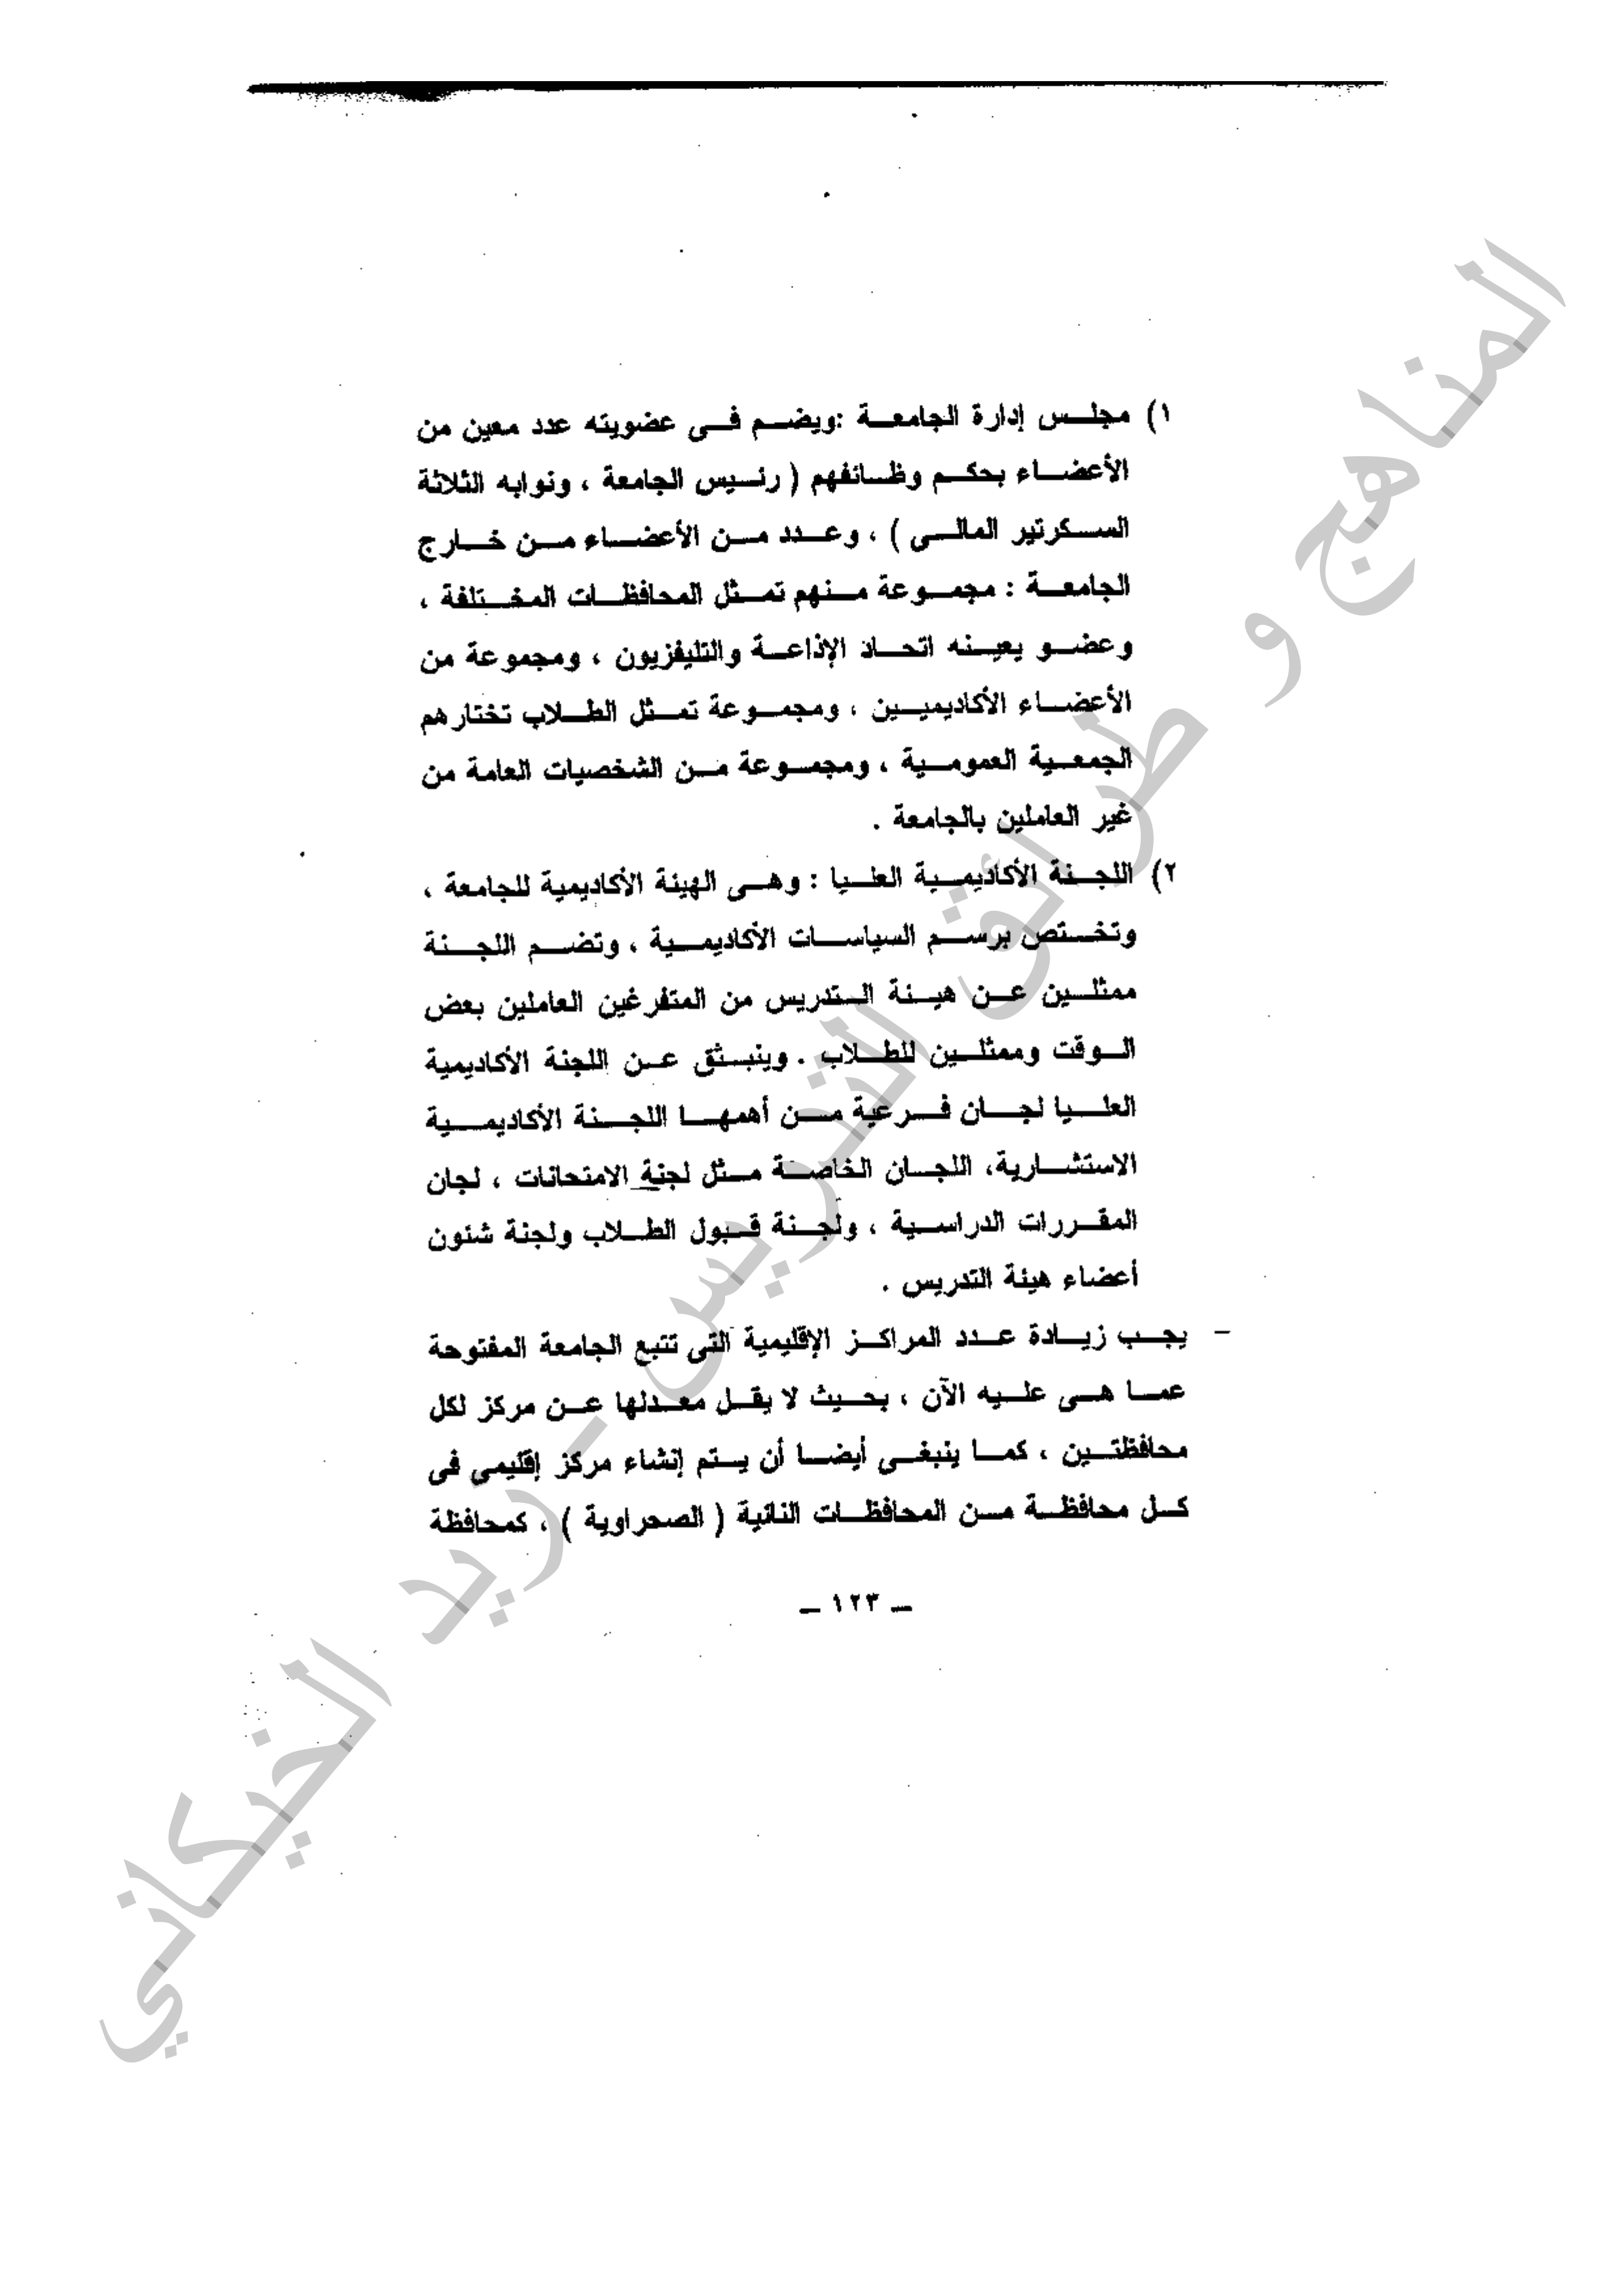 ١) مجلس إدارة الجامعة :ويضم فى عضويته عدد معين من
الأعضاء بحكم وظائفهم ( رئيس الجامعة ، ونوابه الثلاثة
السكرتير المالى ) ، وعدد من الأعضاء من خارج
الجامعة : مجموعة منهم تمثل المحافظات المختلفة ،
وعضو يعينه اتحاد الإذاعة والتليفزيون ، ومجموعة من
الأعضاء الأكاديميين ، ومجموعة تمثل الطلاب تختارهم
الجمعية العمومية ، ومجموعة من الشخصيات العامة من
غير العاملين بالجامعة .
٢) اللجنة الأكاديمية العليا : وهى الهيئة الأكاديمية للجامعة ،
وتختص برسم السياسات الأكاديمية ، وتضم اللجنة
ممثلين عن هيئة التدريس من المتفرغين العاملين بعض
الوقت وممثلين للطلاب . وينبثق عن اللجنة الأكاديمية
العليا لجان فرعية من أهمها اللجنة الأكاديمية
الاستشارية، اللجان الخاصة مثل لجنة الامتحانات ، لجان
المقررات الدراسية ، ولجنة قبول الطلاب ولجنة شئون
أعضاء هيئة التدريس .
- يجب زيادة عدد المراكز الإقليمية التى تتبع الجامعة المفتوحة
عما هى عليه الآن ، بحيث لا يقل معدلها عن مركز لكل
محافظتين ، كما ينبغى أيضا أن يتم إنشاء مركز إقليمي فى
كل محافظة من المحافظات النائية ( الصحراوية ) ، كمحافظة
ــ ١٢٣ ــ
المناهج و طرائق التدريس - زيد الخيكاني